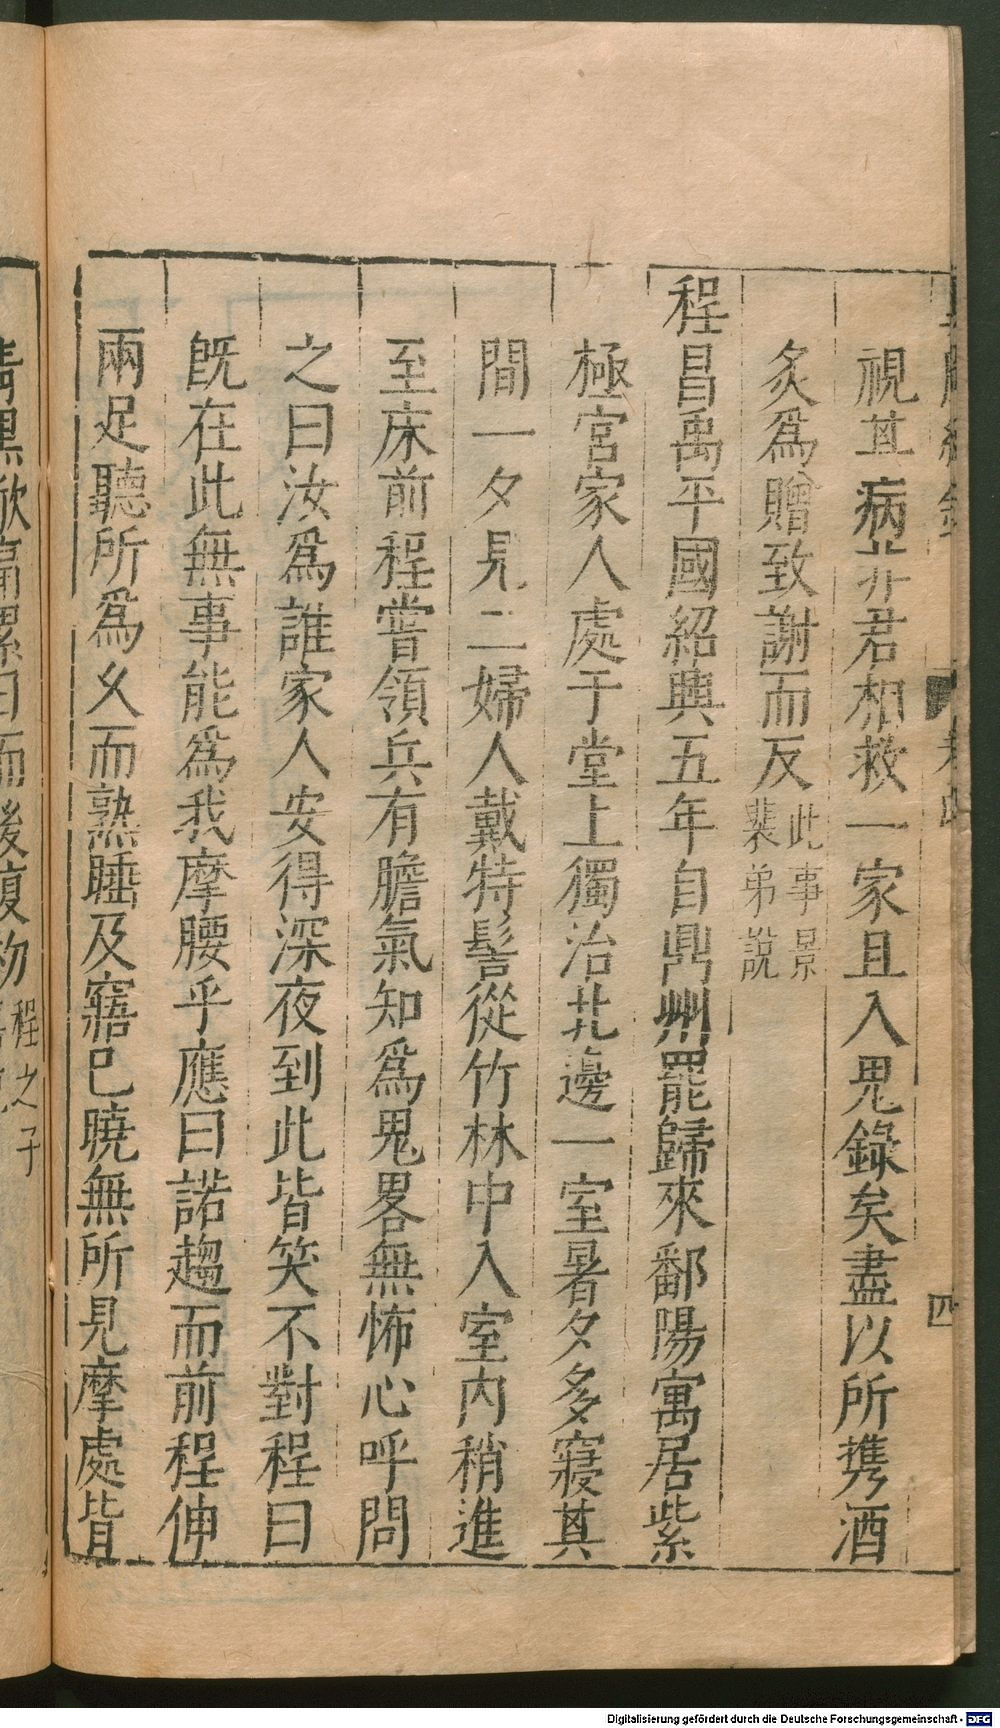 視其病非君相救一家且入鬼錄矣盡以所携酒
炙爲贈致謝而反此事景裴弟說
程昌禹平國紹興五年自鼎州罷歸來鄱陽寓居紫
極宮家人處于堂上獨治北邊一室暑夕多寢其
間一夕見二婦人戴特髻從竹林中入室內稍進
至床前程嘗領兵有膽氣知爲鬼畧無怖心呼問
之曰汝爲誰家人安得深夜到此皆笑不對程曰
旣在此無事能爲我摩腰乎應曰諾趨而前程伸
兩足聽所爲乆而熟睡及寤已曉無所見摩處皆
Digitalisierung gefördert durch die Deutsche Forschungsgemeinschaft - DFG